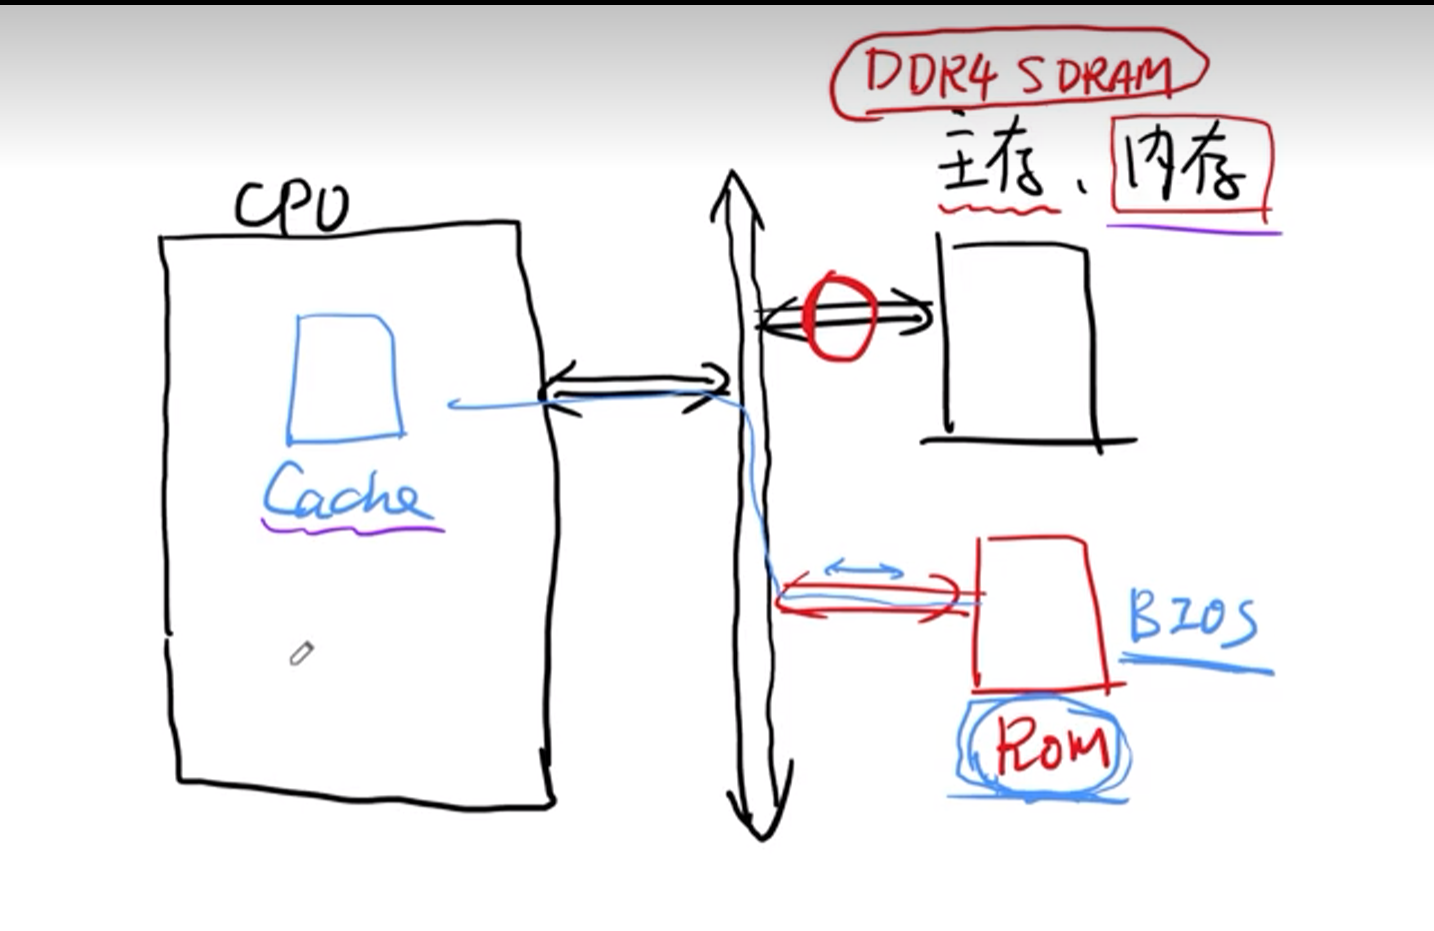 DDR4 SDRAM
主存、内存
CPU
Cache
BIOS
ROM